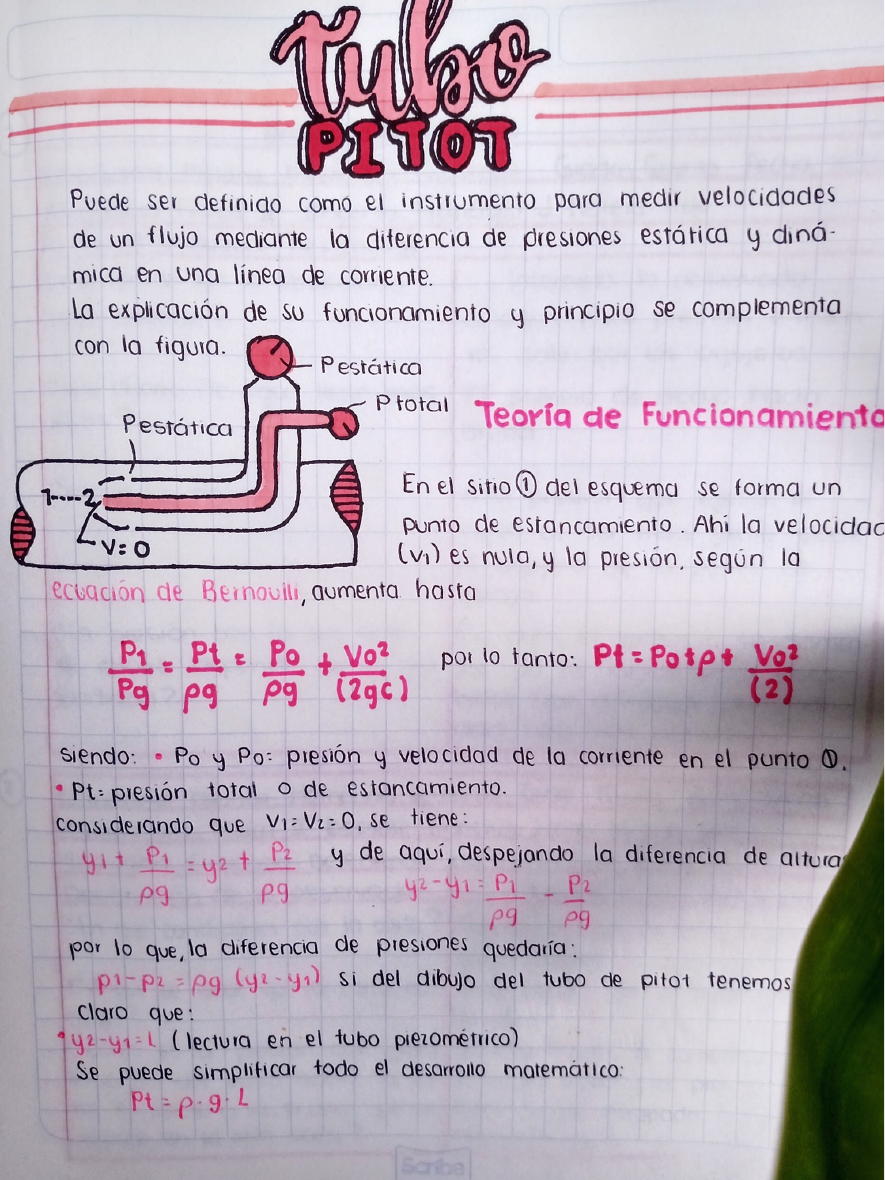 Tubo
PITOT
Puede ser definido como el instrumento para medir velocidades
de un flujo mediante la diferencia de presiones estática y diná-
mica en una línea de corriente.
La explicación de su funcionamiento y principio se complementa
con la figura.
Pestática
Ptotal
Pestática
1----2
V=0
Teoría de Funcionamiento
En el sitio ① del esquema se forma un
punto de estancamiento. Ahi la velocidad
(V1) es nula, y la presión, según la
ecuación de Bernouili, aumenta hasta
P1/Pg = Pt/ρg = Po/ρg + Vo²/(2gc) por lo tanto: Pt = Po+ρ+ Vo²/(2)
siendo: • Po y Po: presión y velocidad de la corriente en el punto ①.
• Pt: presión total o de estancamiento.
considerando que V1=V2=0, se tiene:
y1+ P1/ρg = y2 + P2/ρg y de aquí, despejando la diferencia de altura
y2-y1 = P1/ρg - P2/ρg
por lo que, la diferencia de presiones quedaría:
p1-p2 = ρg (y2-y1) si del dibujo del tubo de pitot tenemos
claro que:
• y2-y1=L (lectura en el tubo piezométrico)
Se puede simplificar todo el desarrollo matemático:
Pt = ρ·g·L
Scribe